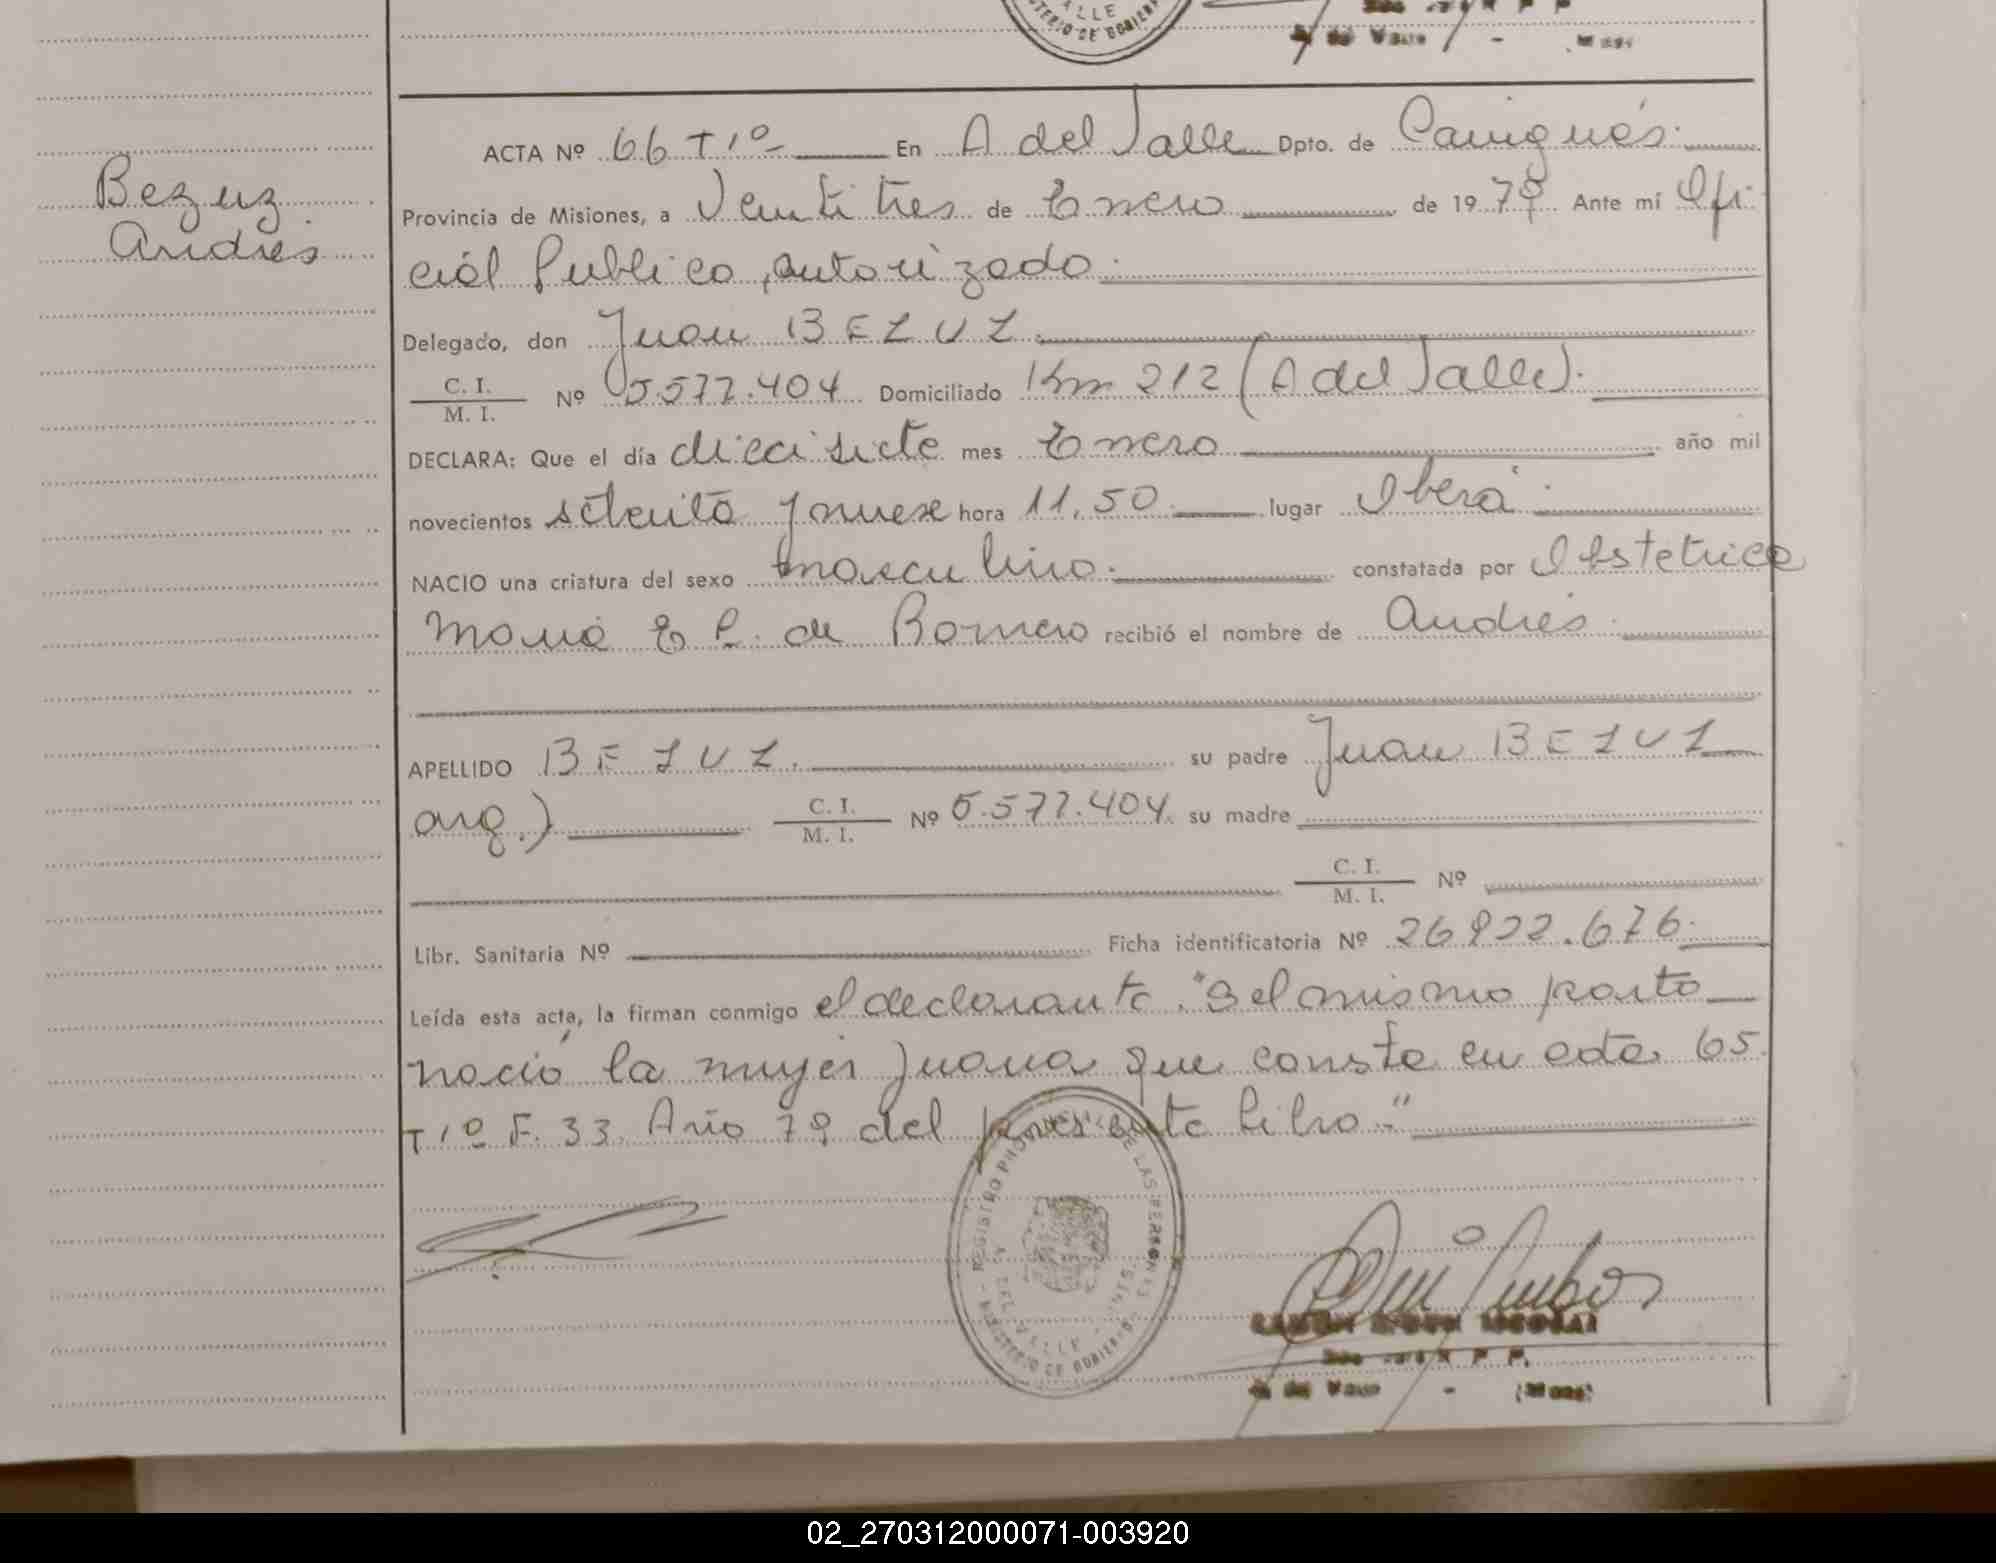 ALLE
TERIO DE GOBIER
Bezuz
Andrés
ACTA Nº 66 T 1º En A del Valle Dpto. de Cainguás
Provincia de Misiones, a Veintitres de Enero de 1979 Ante mí Ofi
cial Publico autorizado
Delegado, don Juan BEZUZ
C. I.
M. I. Nº 5.577.404 Domiciliado Km 212 (A del Valle).
DECLARA: Que el día diecisiete mes Enero año mil
novecientos setenta y nueve hora 11,50 lugar Oberá
NACIO una criatura del sexo masculino. constatada por Obstetrica
María E P. de Romero recibió el nombre de Andrés
APELLIDO BEZUZ. su padre Juan BEZUZ
arg.) C. I.
M. I. Nº 5.577.404 su madre
C. I.
M. I. Nº
Libr. Sanitaria Nº Ficha identificatoria Nº 26922.676
Leída esta acta, la firman conmigo el declarante. "Del mismo parto
nació la mujer Juana que consta en acta 65
T 1º F. 33 Año 79 del presente libro."
REGISTRO PROVINCIAL DE LAS PERSONAS
A. DEL VALLE - MNES.
MINISTERIO DE GOBIERNO
02_270312000071-003920